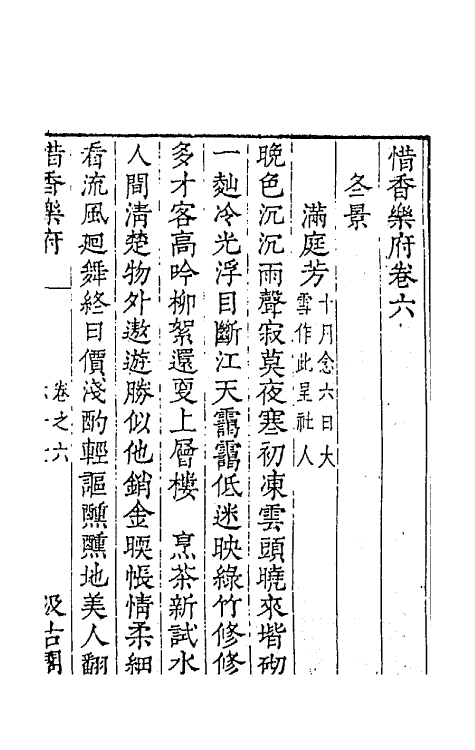 惜香樂府卷六
冬景
滿庭芳十月念六日大
雪作此呈社人
晚色沉沉雨聲寂莫夜寒初凍雲頭曉來堦砌
一㔾冷光浮目斷江天靄靄低迷映綠竹修修
多才客高吟柳絮還更上層樓　烹茶新試水
人間清楚物外遨遊勝似他銷金暖帳情柔細
看流風廻舞終日價淺酌輕謳醺醺地美人翻
惜香樂府
卷之六
汲古閣